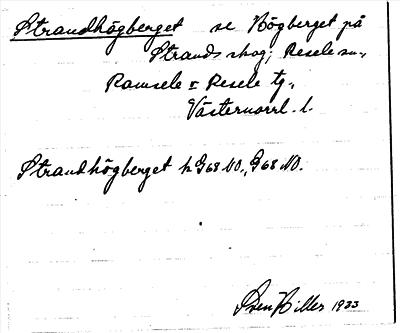 Strandhögberget se Högberget på
Strands skog, Resele sn.,
Ramsele o Resele tg.,
Västernorrl. l.
Strandhögberget h G68 NO., G 68 NO.
Sten Hiller 1933